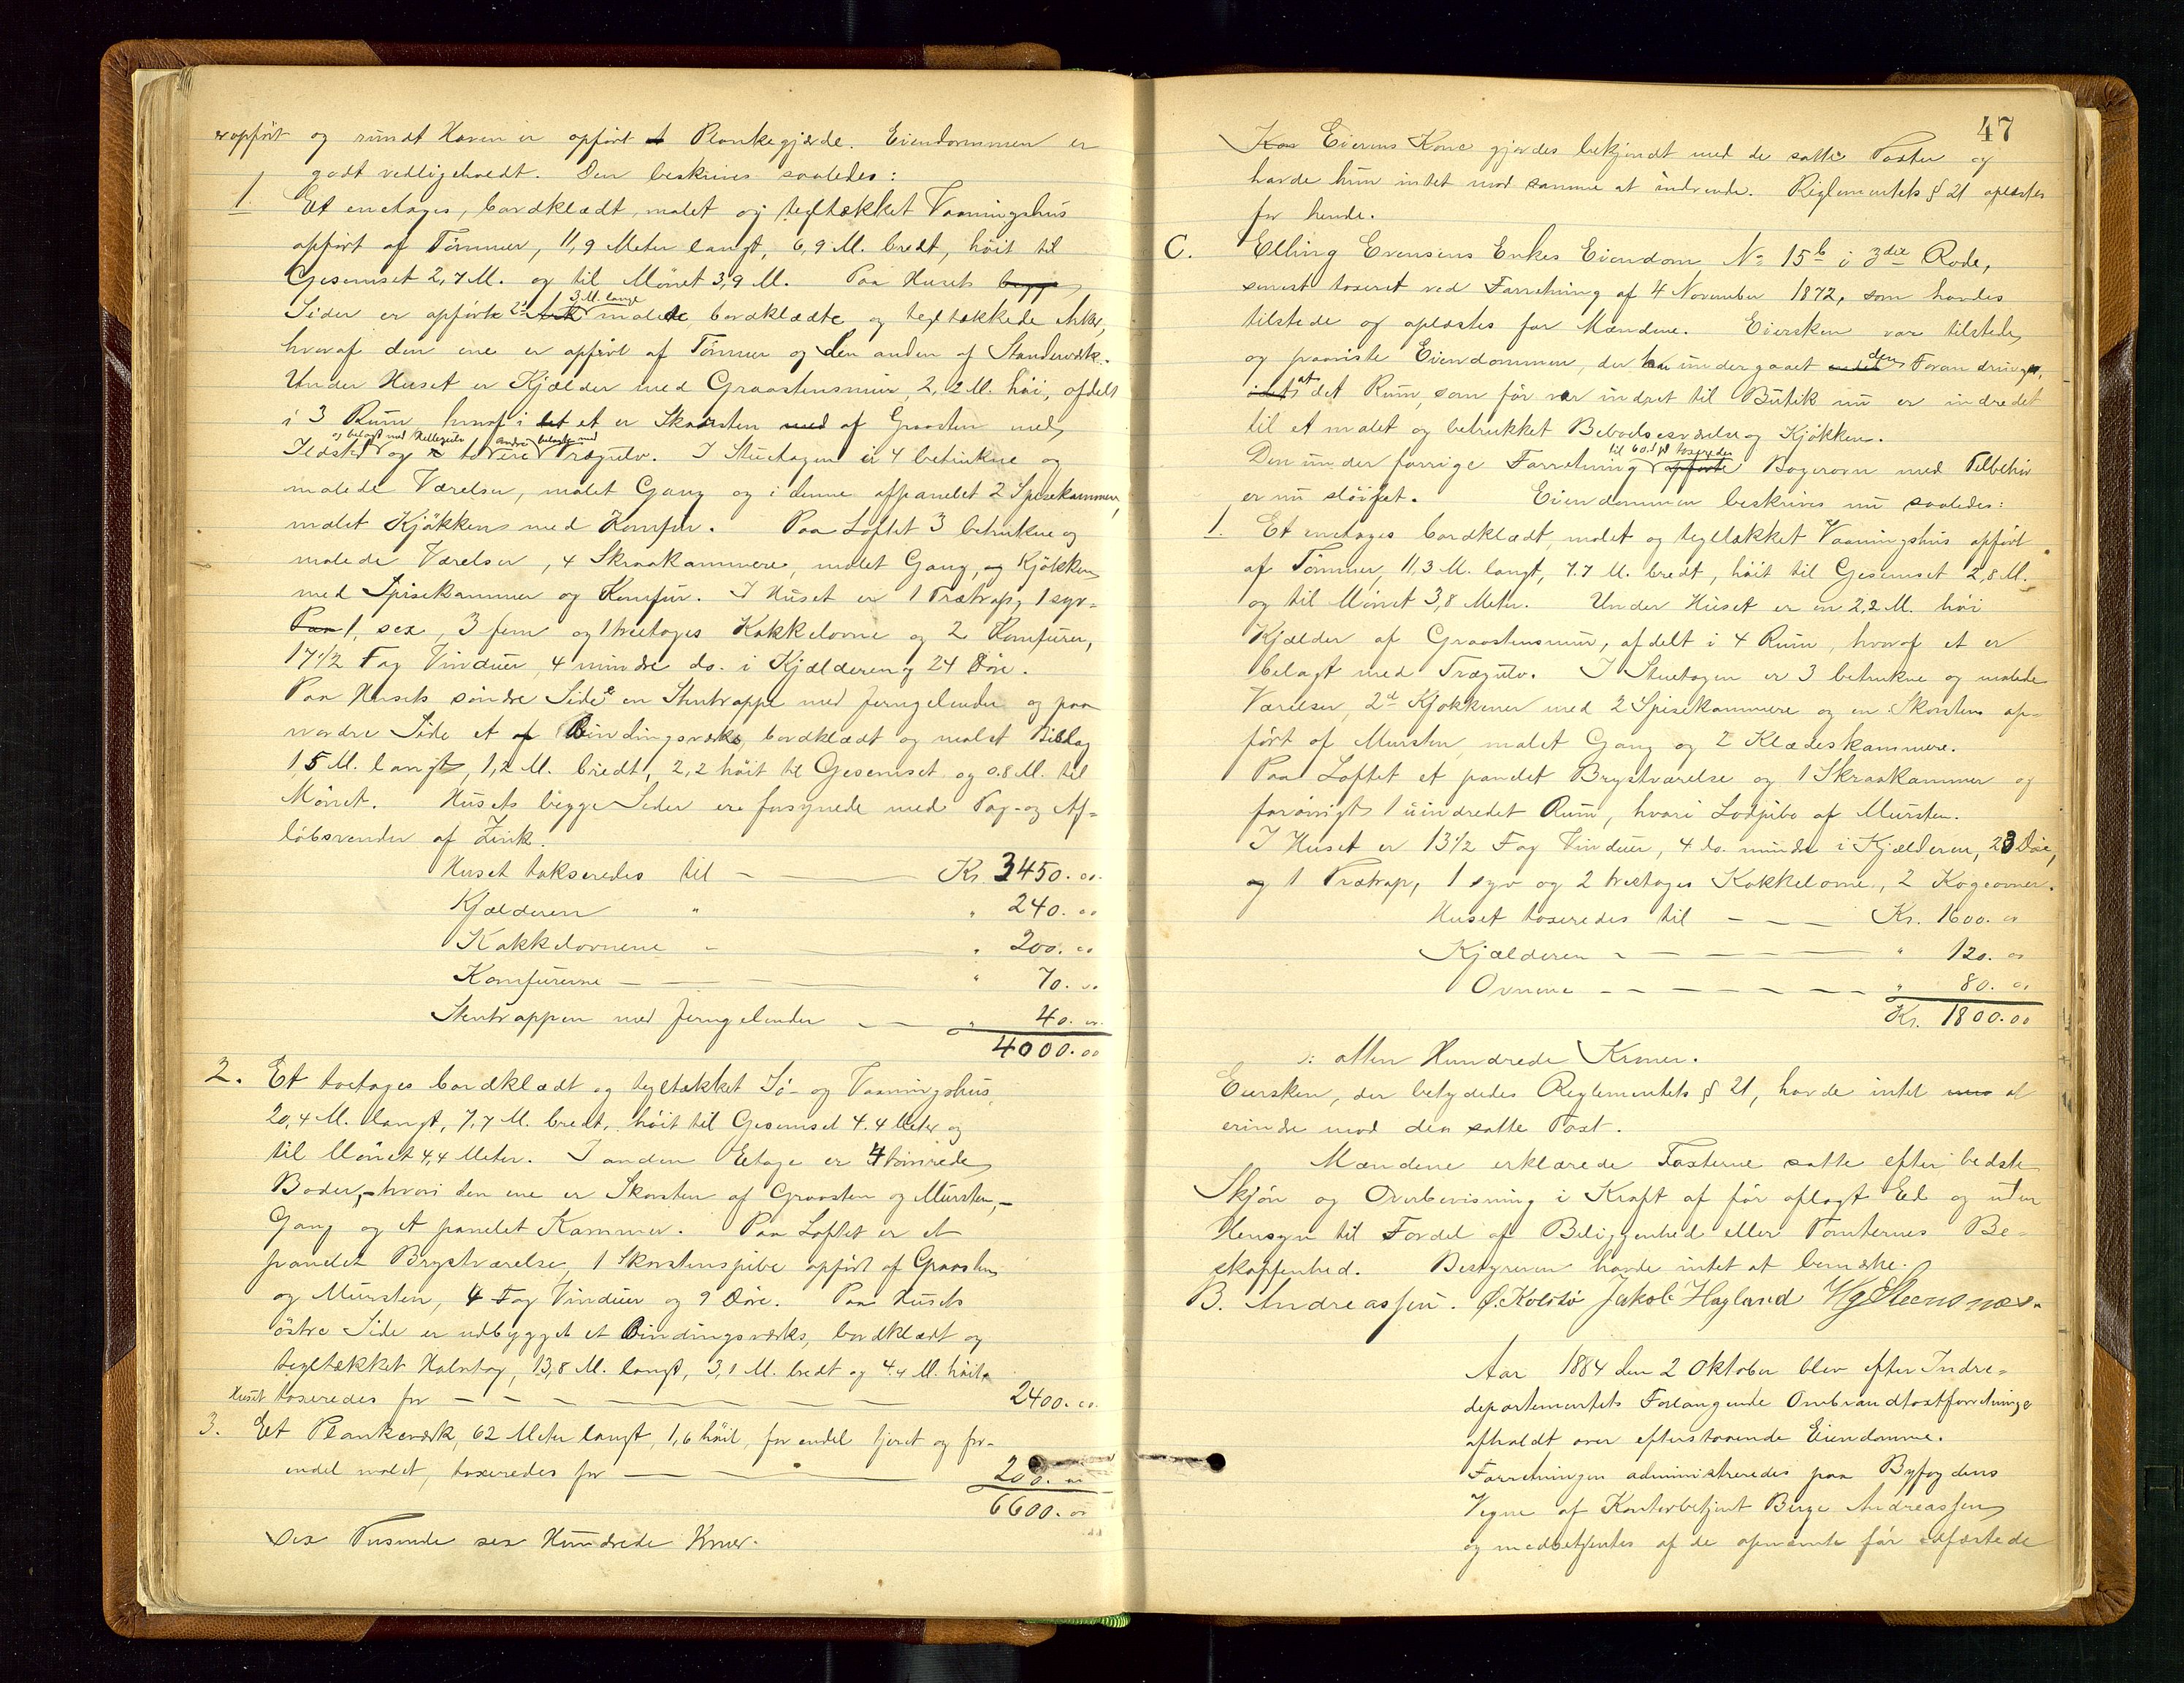 er opført og rundt Haven er opført et Plankegjærde. Eiendommen er
godt vedligeholdt. Den beskrives saaledes:
1 Et enetages, bordklædt, malet og tegltækket Vaaningshus
opført af Tømmer, 11,9 Meter langt, 6,9 M. bredt, høit til
Gesemset 2,7 M. og til Mønet 3,9 M. Paa Husets begge
Sider er opførte 2de 3 M. lange malede, bordklædte og tegltækkede Arker,
hvoraf den ene er opført af Tømmer og den anden af Standerværk.
Under Huset er Kjælder med Graastensmur, 2,2 M. høi, afdelt
i 3 Rum hvoraf i et er Skorsten med af Graasten med
Ildsted og belagt med Hellegulv og to andre belagte med Trægulv. I Stuetagen er 4 betrukne og
malede Værelser, malet Gang og i denne afpanelet 2 Spisekammer,
malet Kjøkken med Komfur. Paa Loftet 3 betrukne og
malede Værelser, 4 Skraakammere, malet Gang, og Kjøkken
med Spisekammer og Komfur. I Huset er 1 Trætrap, 1 syv-
Paa 1, sex, 3 fem og 1 treetages Kakkelovne og 2 Komfurer,
17 1/2 Fag Vinduer, 4 mindre do. i Kjælderen og 24 Døre.
Paa Husets søndre Side en Stentrappe med Jerngelender og paa
nordre Side et af Bindingsværks, bordklædt og malet Bislag
1,5 M. langt, 1,2 M. bredt, 2,2 høit til Gesemset og 0.8 M. til
Mønet. Husets begge Sider ere forsynede med Tag- og Af-
løbsrender af Zink.
Huset takseredes til — Kr. 3450.00
Kjælderen " " 240.00
Kakkelovnene - " 200.00
Komfurerne — " 70.00
Stentrappen med Jerngelender — " 40.00
4000.00
2. Et toetages bordklædt og tegltækket Sø- og Vaaningshus,
20,4 M. langt, 7,7 M. bredt, høit til Gesemset 4.4 Meter og
til Mønet 4,4 Meter. I anden Etage er 4 tømrede
Boder, - hvori den ene er Skorsten af Graasten og Mursten, -
Gang og et panelet Kammer. Paa Loftet er et
panelet Brystværelse, 1 Skorstenspibe opført af Graasten
og Mursten, 4 Fag Vinduer og 9 Døre. Paa Husets
østre Side er udbygget et Bindingsværks, bordklædt og
tegltækket Halvtag, 13,8 M. langt, 3,1 M. bredt og 4.4 M. høit.
Huset taxeredes for — 2400.00
3. Et Plankeværk, 62 Meter langt, 1,6 høit, for endel tjæret og for-
endel malet, taxeredes for — 200.00
6600.00
Sex Tusinde sex Hundrede Kroner.
47
Kon Eierens Kone gjordes bekjendt med de satte Taxter og
havde hun intet mod samme at indvende. Reglementets § 21 oplæstes
for hende.
C. Elling Evensens Enkes Eiendom No 15b i 3die Rode,
senest taxeret ved Forretning af 4 November 1872, som havdes
tilstede og oplæstes for Mændene. Eiersken var tilstede
og paaviste Eiendommen, der har undergaaet den Forandring,
at det Rum, som før var indret til Butik nu er indredet
til et malet og betrukket Beboelsesværelse og Kjøkken.
Den under forrige Forretning til 60 Spd taxerede opførte Bagerovn med Tilbehør
er nu sløifet. Eiendommen beskrives nu saaledes:
1. Et enetages bordklædt, malet og tegltækket Vaaningshus opført
af Tømmer, 11,3 M. langt, 7.7 M. bredt, høit til Gesemset 2,8 M.
og til Mønet 3,8 Meter. Under Huset er en 2,2 M. høi
Kjælder af Graastensmur, afdelt i 4 Rum, hvoraf et er
belagt med Trægulv. I Stuetagen er 3 betrukne og malede
Værelser, 2de Kjøkkener med 2 Spisekammere og en Skorsten op-
ført af Mursten, malet Gang og 2 Klædeskammere.
Paa Loftet et panelet Brystværelse og 1 Skraakammer og
forøvrigt 1 uindredet Rum, hvori Lodpibe af Mursten.
I Huset er 13 1/2 Fag Vinduer, 4 do. mindre i Kjælderen, 23 Døre,
og 1 Trætrap, 1 syv og 2 treetages Kakkelovne, 2 Kogeovner.
Huset taxeredes til — Kr. 1600.00
Kjælderen — " 120.00
Ovnene — " 80.00
Kr. 1800.00
ↄ: atten Hundrede Kroner.
Eiersken, der betydedes Reglementets § 21, havde intet at
erindre mod den satte Taxt.
Mændene erklærede Taxterne satte efter bedste
Skjøn og Overbevisning i Kraft af før aflagt Ed og uden
Hensyn til Fordel af Beliggenhed eller Tomternes Be-
skaffenhed. Bestyreren havde intet at bemærke.
B. Andreassen. Ø. Kolstø Jakob Hagland
Aar 1884 den 2 Oktober blev efter Indre-
departementets Forlangende Ombrandtaxtforretninger
afholdt over efterstaaende Eiendomme.
Forretningen administreredes paa Byfogdens
Vegne af Kontorbetjent Berge Andreassen
og medbetjentes af de opnævnte før edfæstede